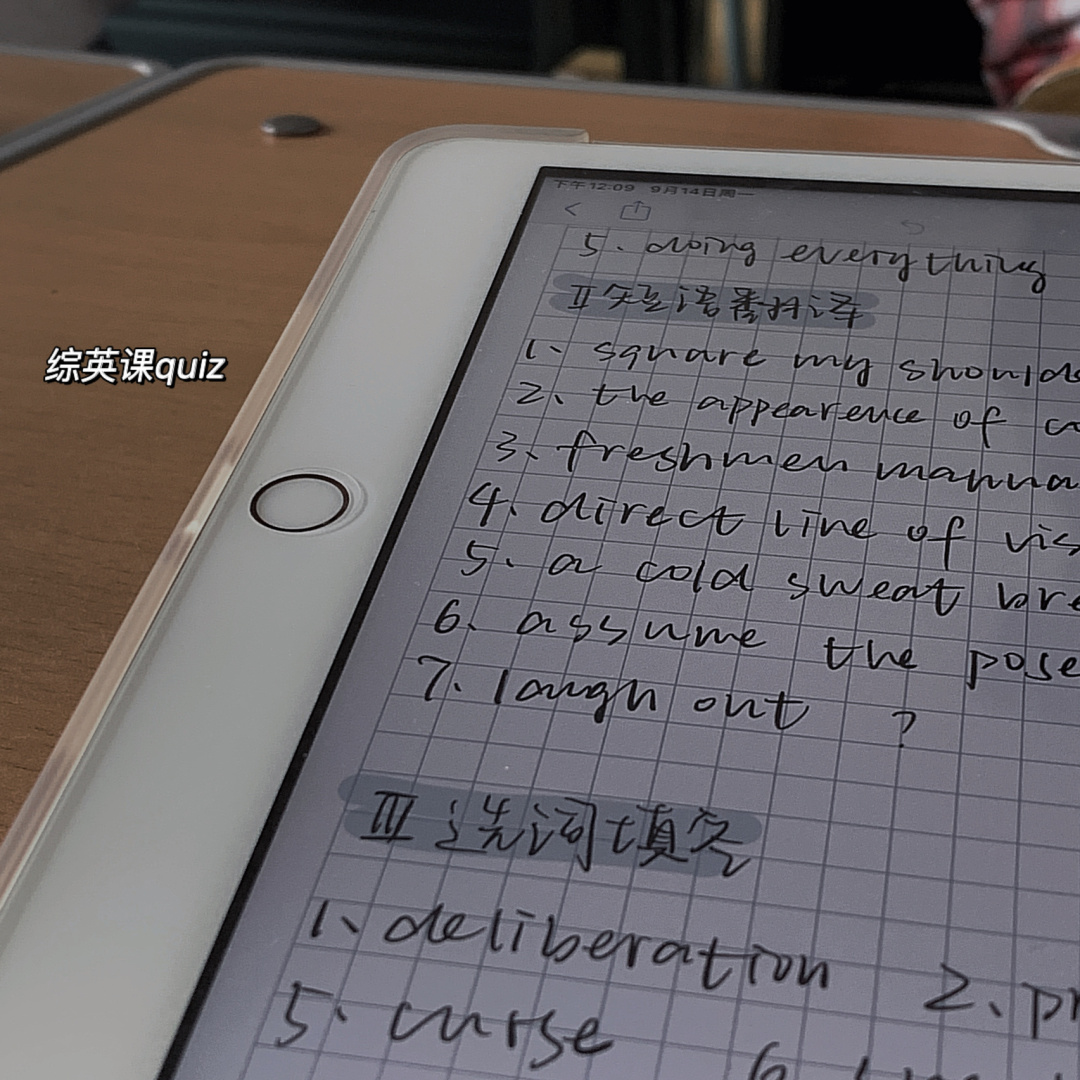 下午12:09 9月14日周一
5、doing everything
II 短语翻译
1、square my
2、the appearence of
3、freshmen
4、direct line of
5、a cold sweat
6、assume the pose
7、laugh out ?
综英课quiz
III 选词填空
1、deliberation 2、
5、curse 6